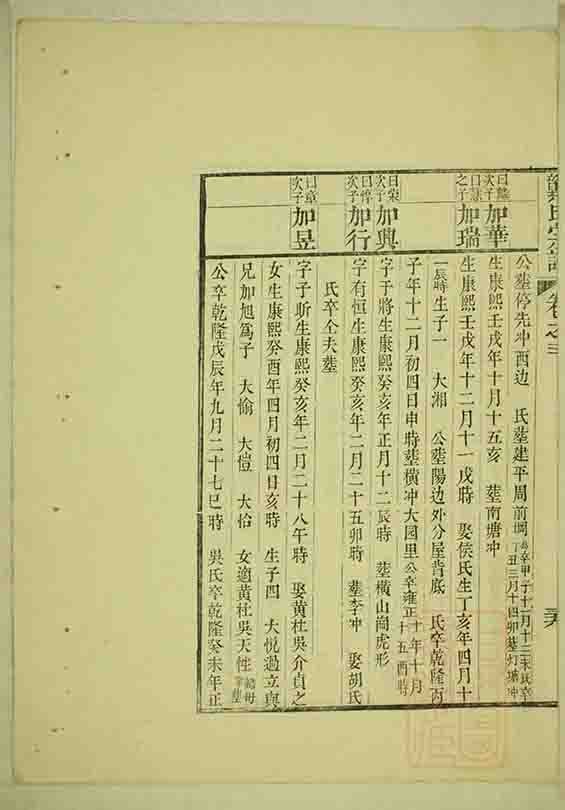 卷之三
公塟停先冲西边 氏塟建平周前
曰 次子 加華 生康熙壬戌年十月十五亥 塟南塘冲
之子 加瑞 生康熙壬戌年十二月十一戌時 娶侯氏生丁亥年四月十
一辰時生子一 大湘 公塟陽边外分屋背底 氏卒乾隆丙
子年十二月初四日申時塟横冲大园里公卒雍正十年十月十五酉時
曰宋次子 加興 字于將生康熙癸亥年正月十二辰時 塟横山崗虎形
次子 加行 字有恒生康熙癸亥年二月二十五卯時 塟李冲 娶胡氏
氏卒仝夫塟
曰章次子 加昱 字子昕生康熙癸亥年二月二十八午時 娶黄杜吳介貞之
女生康熙癸酉年四月初四日亥時 生子四 大悦過立與
兄加旭為子 大愉 大愷 大恰 女適黄杜吳天性
公卒乾隆戊辰年九月二十七巳時 吳氏卒乾隆癸未年正